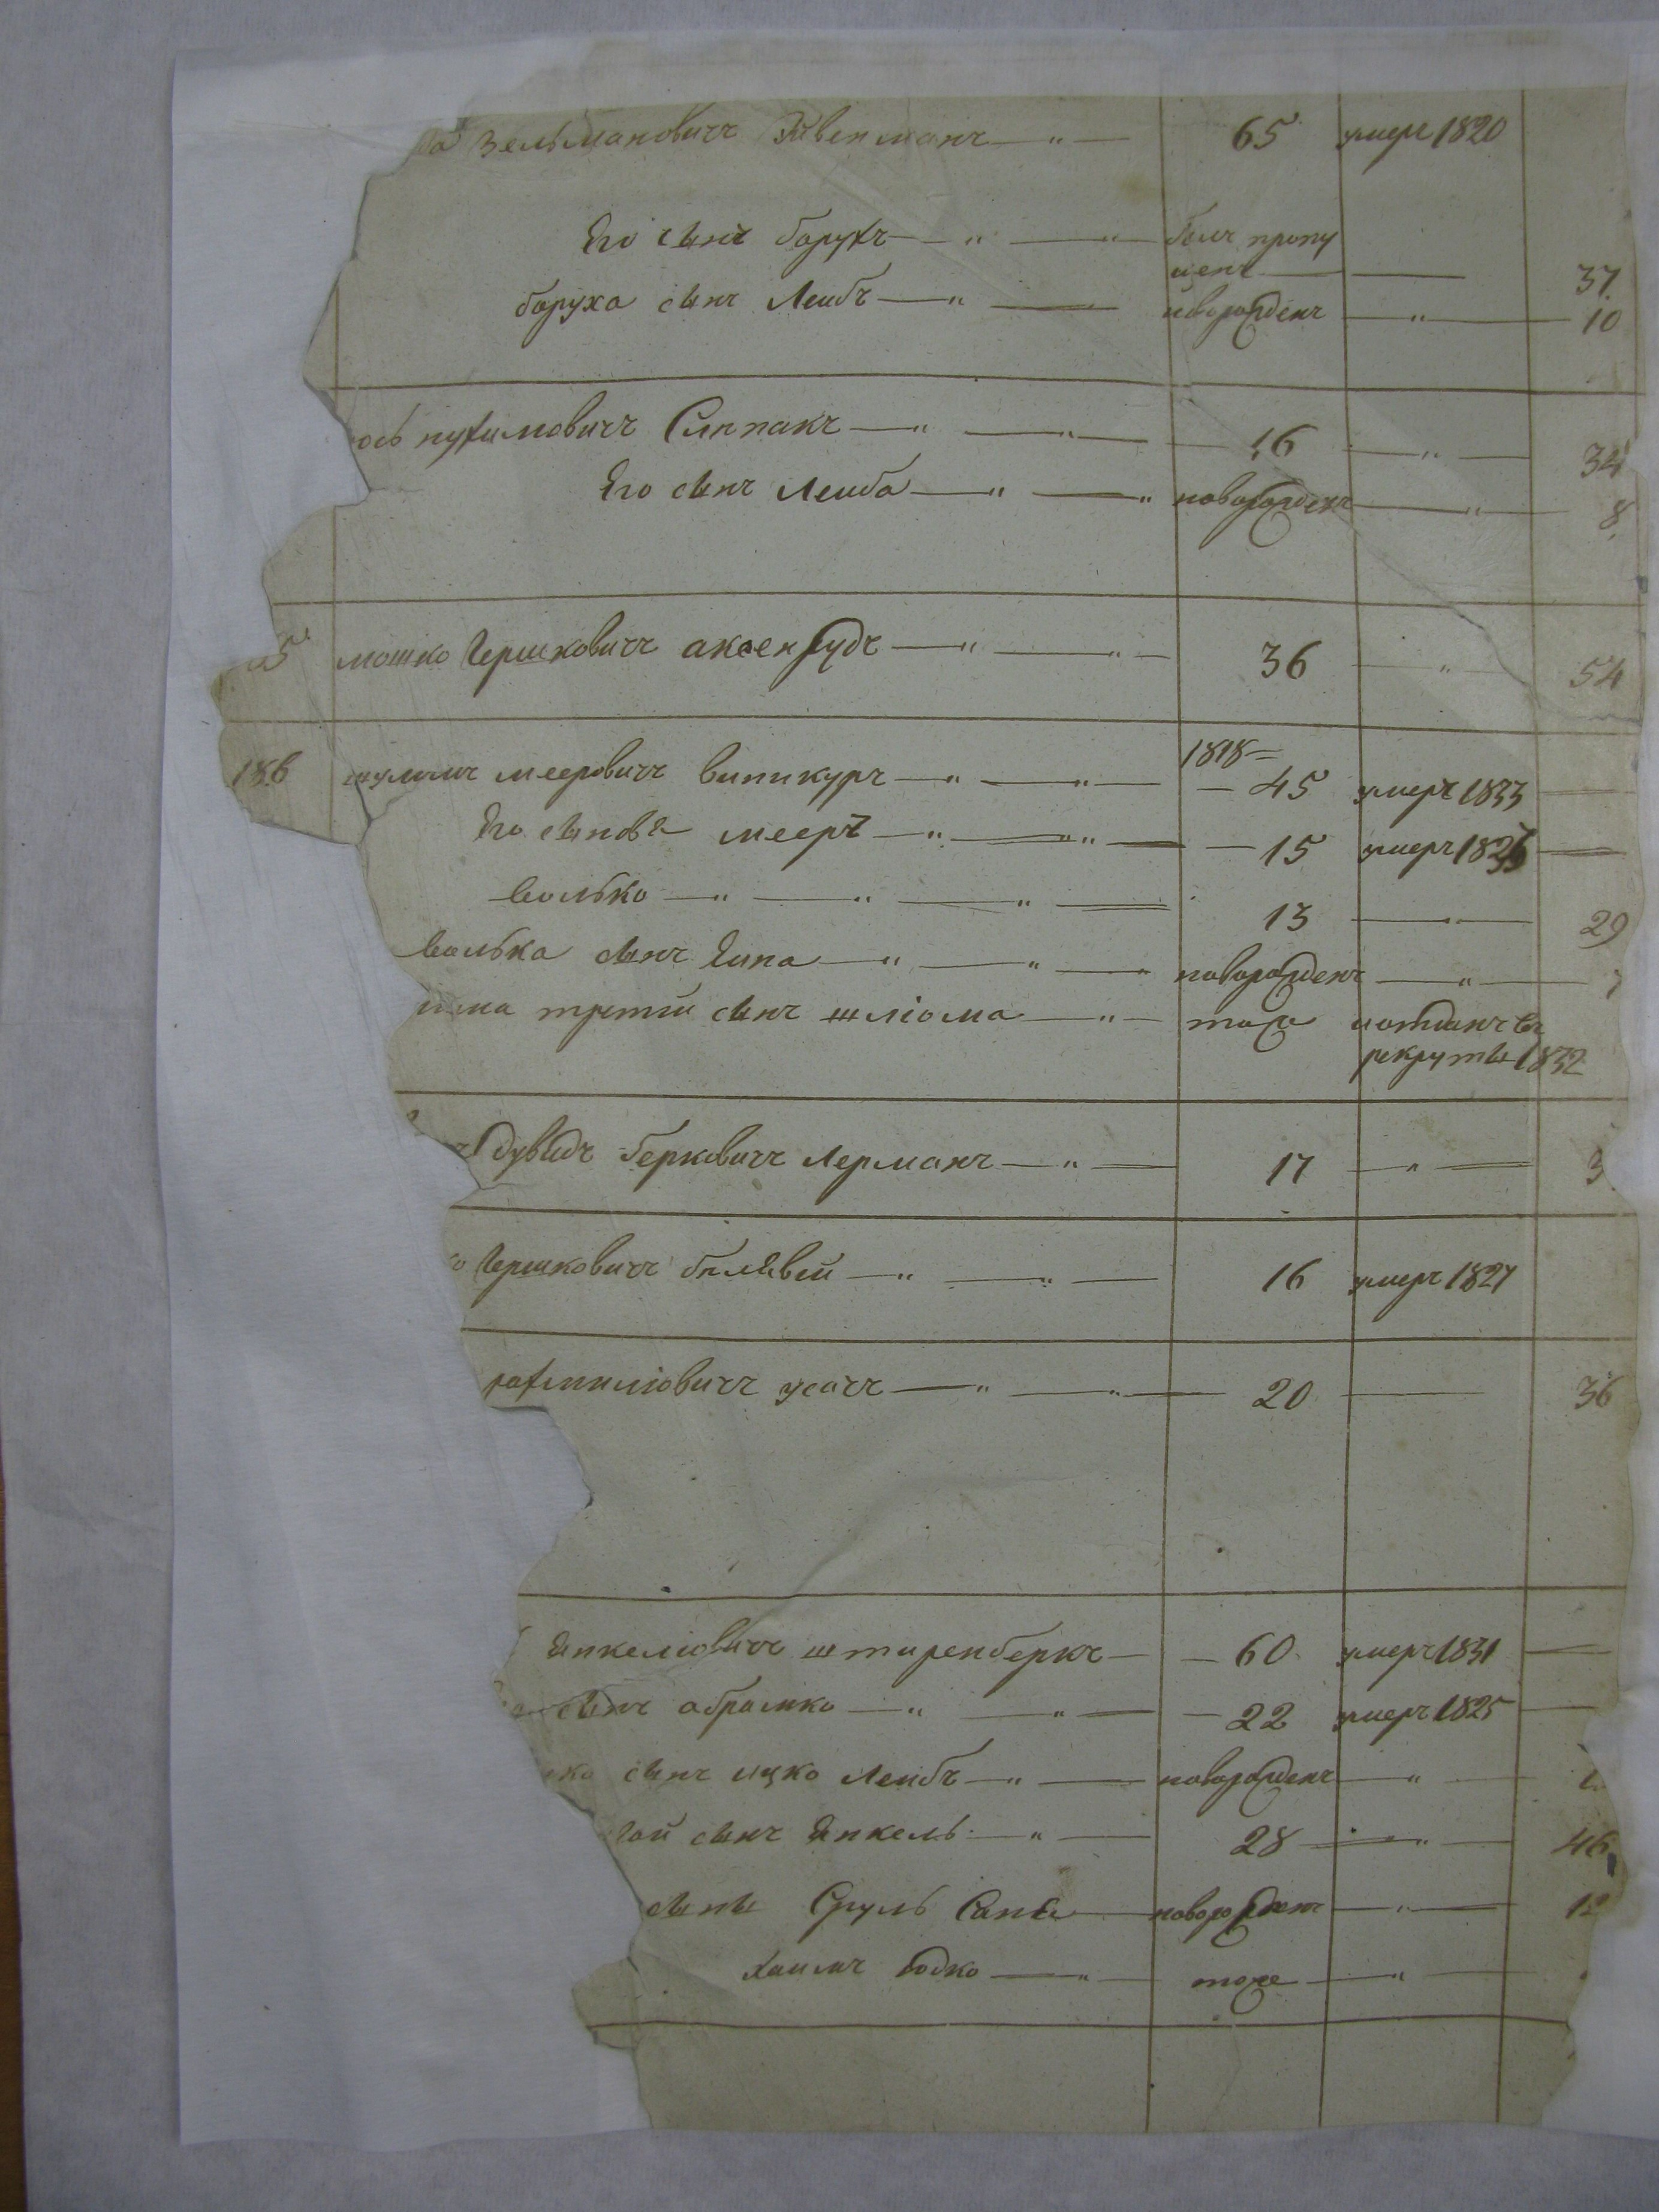 Зельмановичъ 65 умеръ 1820
Его сынъ барухъ былъ пропу
щенъ 37
баруха сынъ Лейбъ новорожденъ 10
ось нухимовичъ 16 34
Его сынъ Лейба новорожденъ 8
5 мошко Гершковичъ аксенрудъ 36 54
1818
186 шулимъ мееровичъ виникуръ 45 умеръ 1833
Его сыновья мееръ 15 умеръ
волько 13 29
волька сынъ новорожденъ
третій сынъ шліома тоже отданъ въ
рекруты 1832
дувидъ берковичъ Лерманъ 17 3
Гершковичъ 16 умеръ 1827
рахмиліовичъ усачъ 20 36
Янкеліовичъ штиренберкъ 60 умеръ 1831
сынъ абрамко 22 умеръ 1825
сынъ ицко Лейбъ новорожденъ
гой сынъ Янкель 28 46
сыны Сруль новорожденъ 12
хаимъ Юдко тоже